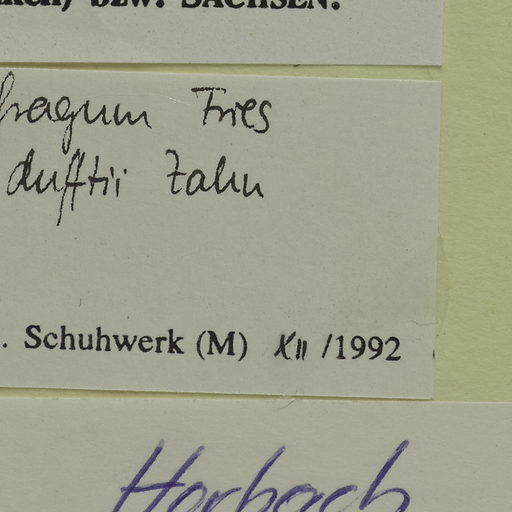 bzw. SACHSEN.
fragum Fries
dufftii Zahn
. Schuhwerk (M) XII /1992
Horbach